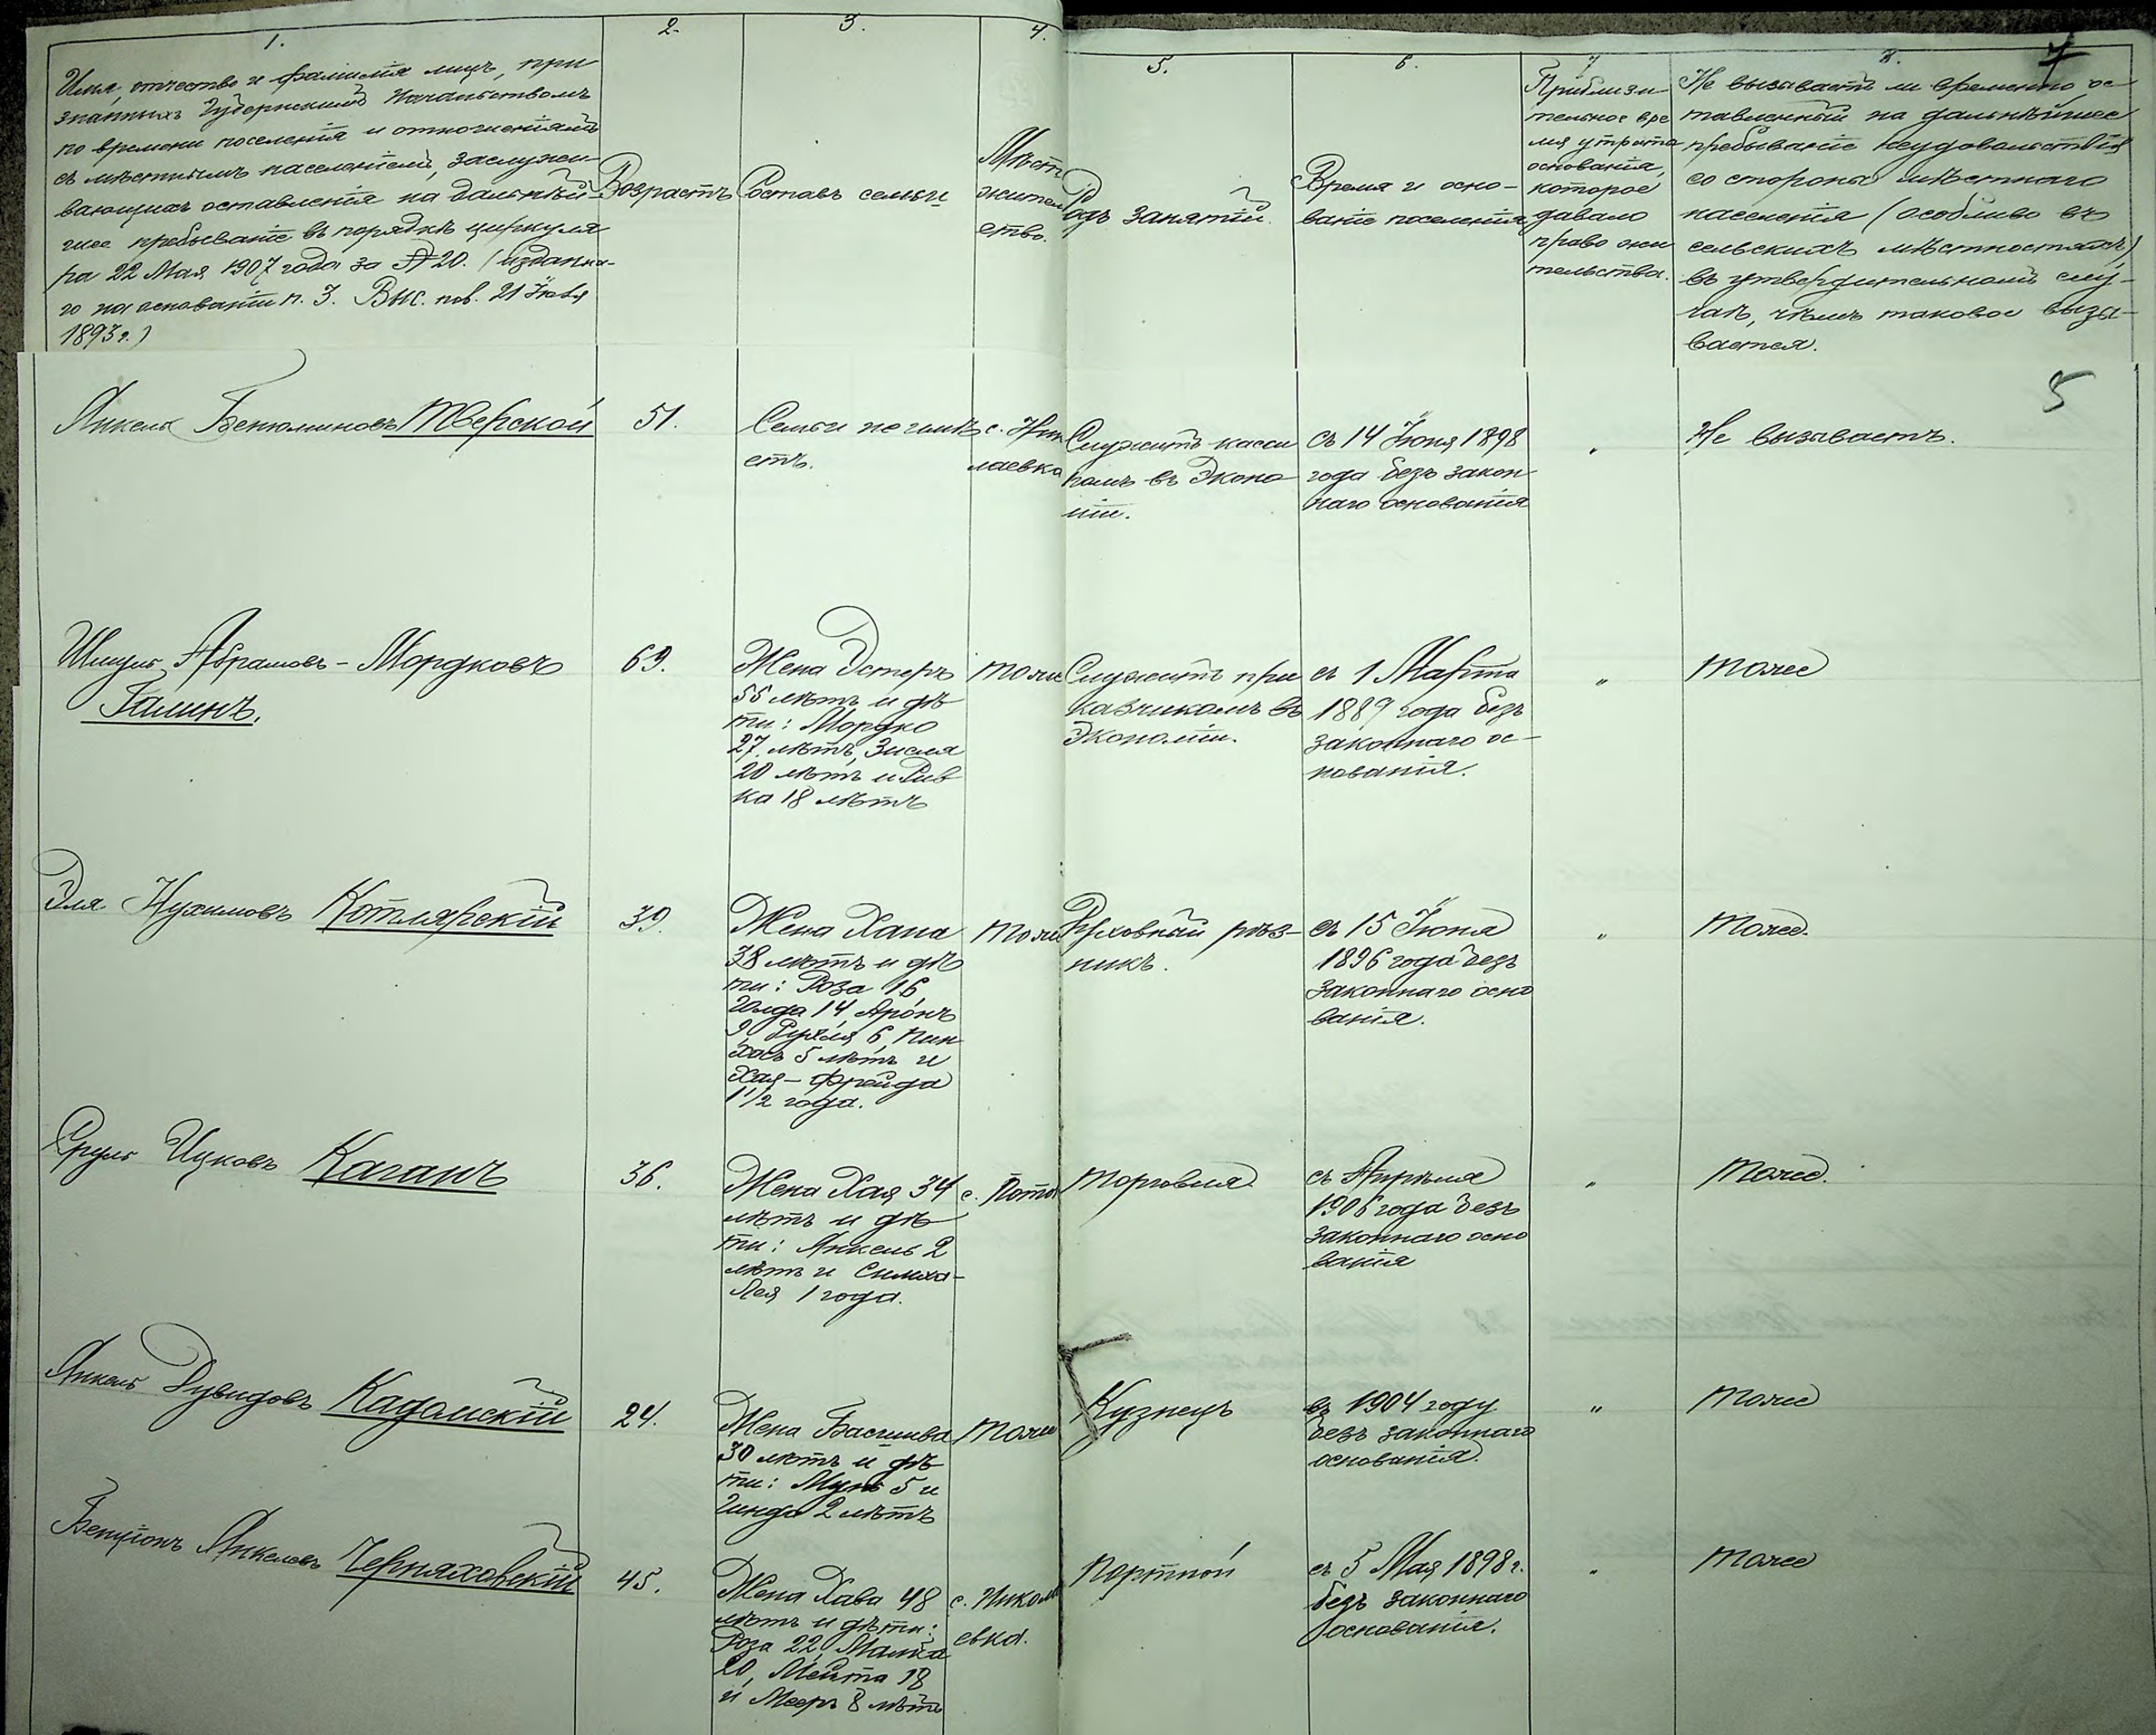 1.
2.
3.
4.
5.
6.
7
8.
7
Имя, отчество и фамилія лицъ, при
знанныхъ Губернскимъ Начальствомъ
по времени поселенія и отношеніямъ
съ мѣстнымъ населеніемъ, заслужи-
вающихъ оставленія на дальнѣй-
шее пребываніе въ порядкѣ циркуля
ра 22 Мая 1907 года за № 20. (изданна-
го на основаніи п. 3. Выс. пов. 21 Іюля
1893 г.)
Возрастъ
Составъ семьи
Мѣсто
жител
ство.
Родъ занятій.
Время и осно-
ваніе поселенія
Приблизи-
тельное вре
мя утраты
основанія,
которое
давало
право жи
тельства.
Не вызываетъ ли временно ос-
тавленный на дальнѣйшее
пребываніе неудовольствія
со стороны мѣстнаго
населенія (особливо въ
сельскихъ мѣстностяхъ)
въ утвердительномъ слу-
чаѣ, чѣмъ таковое вызы-
вается.
5
Янкель Бенюминовъ Тверской
51.
Семьи не имѣ
етъ.
с. Ник
лаевка
Служитъ касси
ромъ въ Эконо
міи.
съ 14 Іюня 1898
года безъ закон
наго основанія
"
Не вызываетъ.
Шмуль Абрамовъ-Мордковъ
Галинъ.
69.
Жена Эстеръ
55 лѣтъ и дѣ
ти: Мордко
27 лѣтъ, Зисля
20 лѣтъ и Рив
ка 18 лѣтъ
тоже
Служитъ при
казчикомъ въ
Экономіи.
съ 1 Марта
1889 года безъ
законнаго ос-
нованія.
"
тоже
Эля Нухимовъ Котлярскій
39.
Жена Хана
38 лѣтъ и дѣ
ти: Роза 16
Голда 14 Аронъ
9, Рухля 6, Пин
хосъ 5 лѣтъ и
Хая-Фрейда
1 1/2 года.
тоже
Духовный рѣз-
никъ.
съ 15 Іюня
1896 года безъ
законнаго осно
ванія.
"
тоже.
Сруль Ицковъ Каганъ
36.
Жена Хая 34
лѣтъ и дѣ
ти: Янкель 2
лѣтъ и Симха-
Лея 1 года.
с. Пото
Торговля.
съ Апрѣля
1906 года безъ
законнаго осно
ванія
"
тоже.
Янкель Дувидовъ Кадомскій
24.
Жена Басшива
30 лѣтъ и дѣ
ти: 5 и
Гинда 2 лѣтъ
тоже
Кузнецъ
въ 1904 году
безъ законнаго
основанія.
"
тоже
Бенціонъ Янкелевъ Черняховскій
45.
Жена Хава 48
лѣтъ и дѣти:
Роза 22, Малка
20, 18
и Мееръ 8 лѣтъ
с. Никола
евка.
Портной
съ 5 Мая 1898 г.
безъ законнаго
основанія.
"
тоже